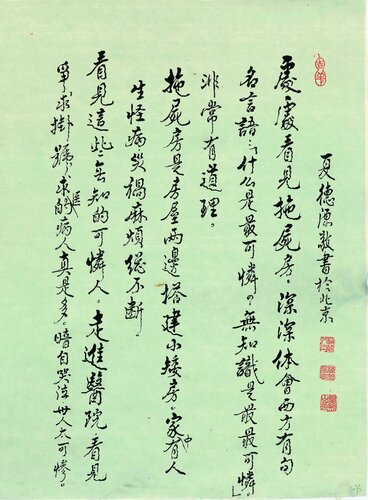 夏德源敬書於北京
處處看見拖屍房。深深体會西方有句
名言語:什么是最可憐?無知識是最最可憐。」
非常有道理。
拖屍房是房屋兩邊搭建小矮房。家中有人
生怪病災禍麻煩総不断。
看見這些無知的可憐人。走進醫院看見
爭求掛號求医的病人真是多。暗自哭泣世人太可慘。